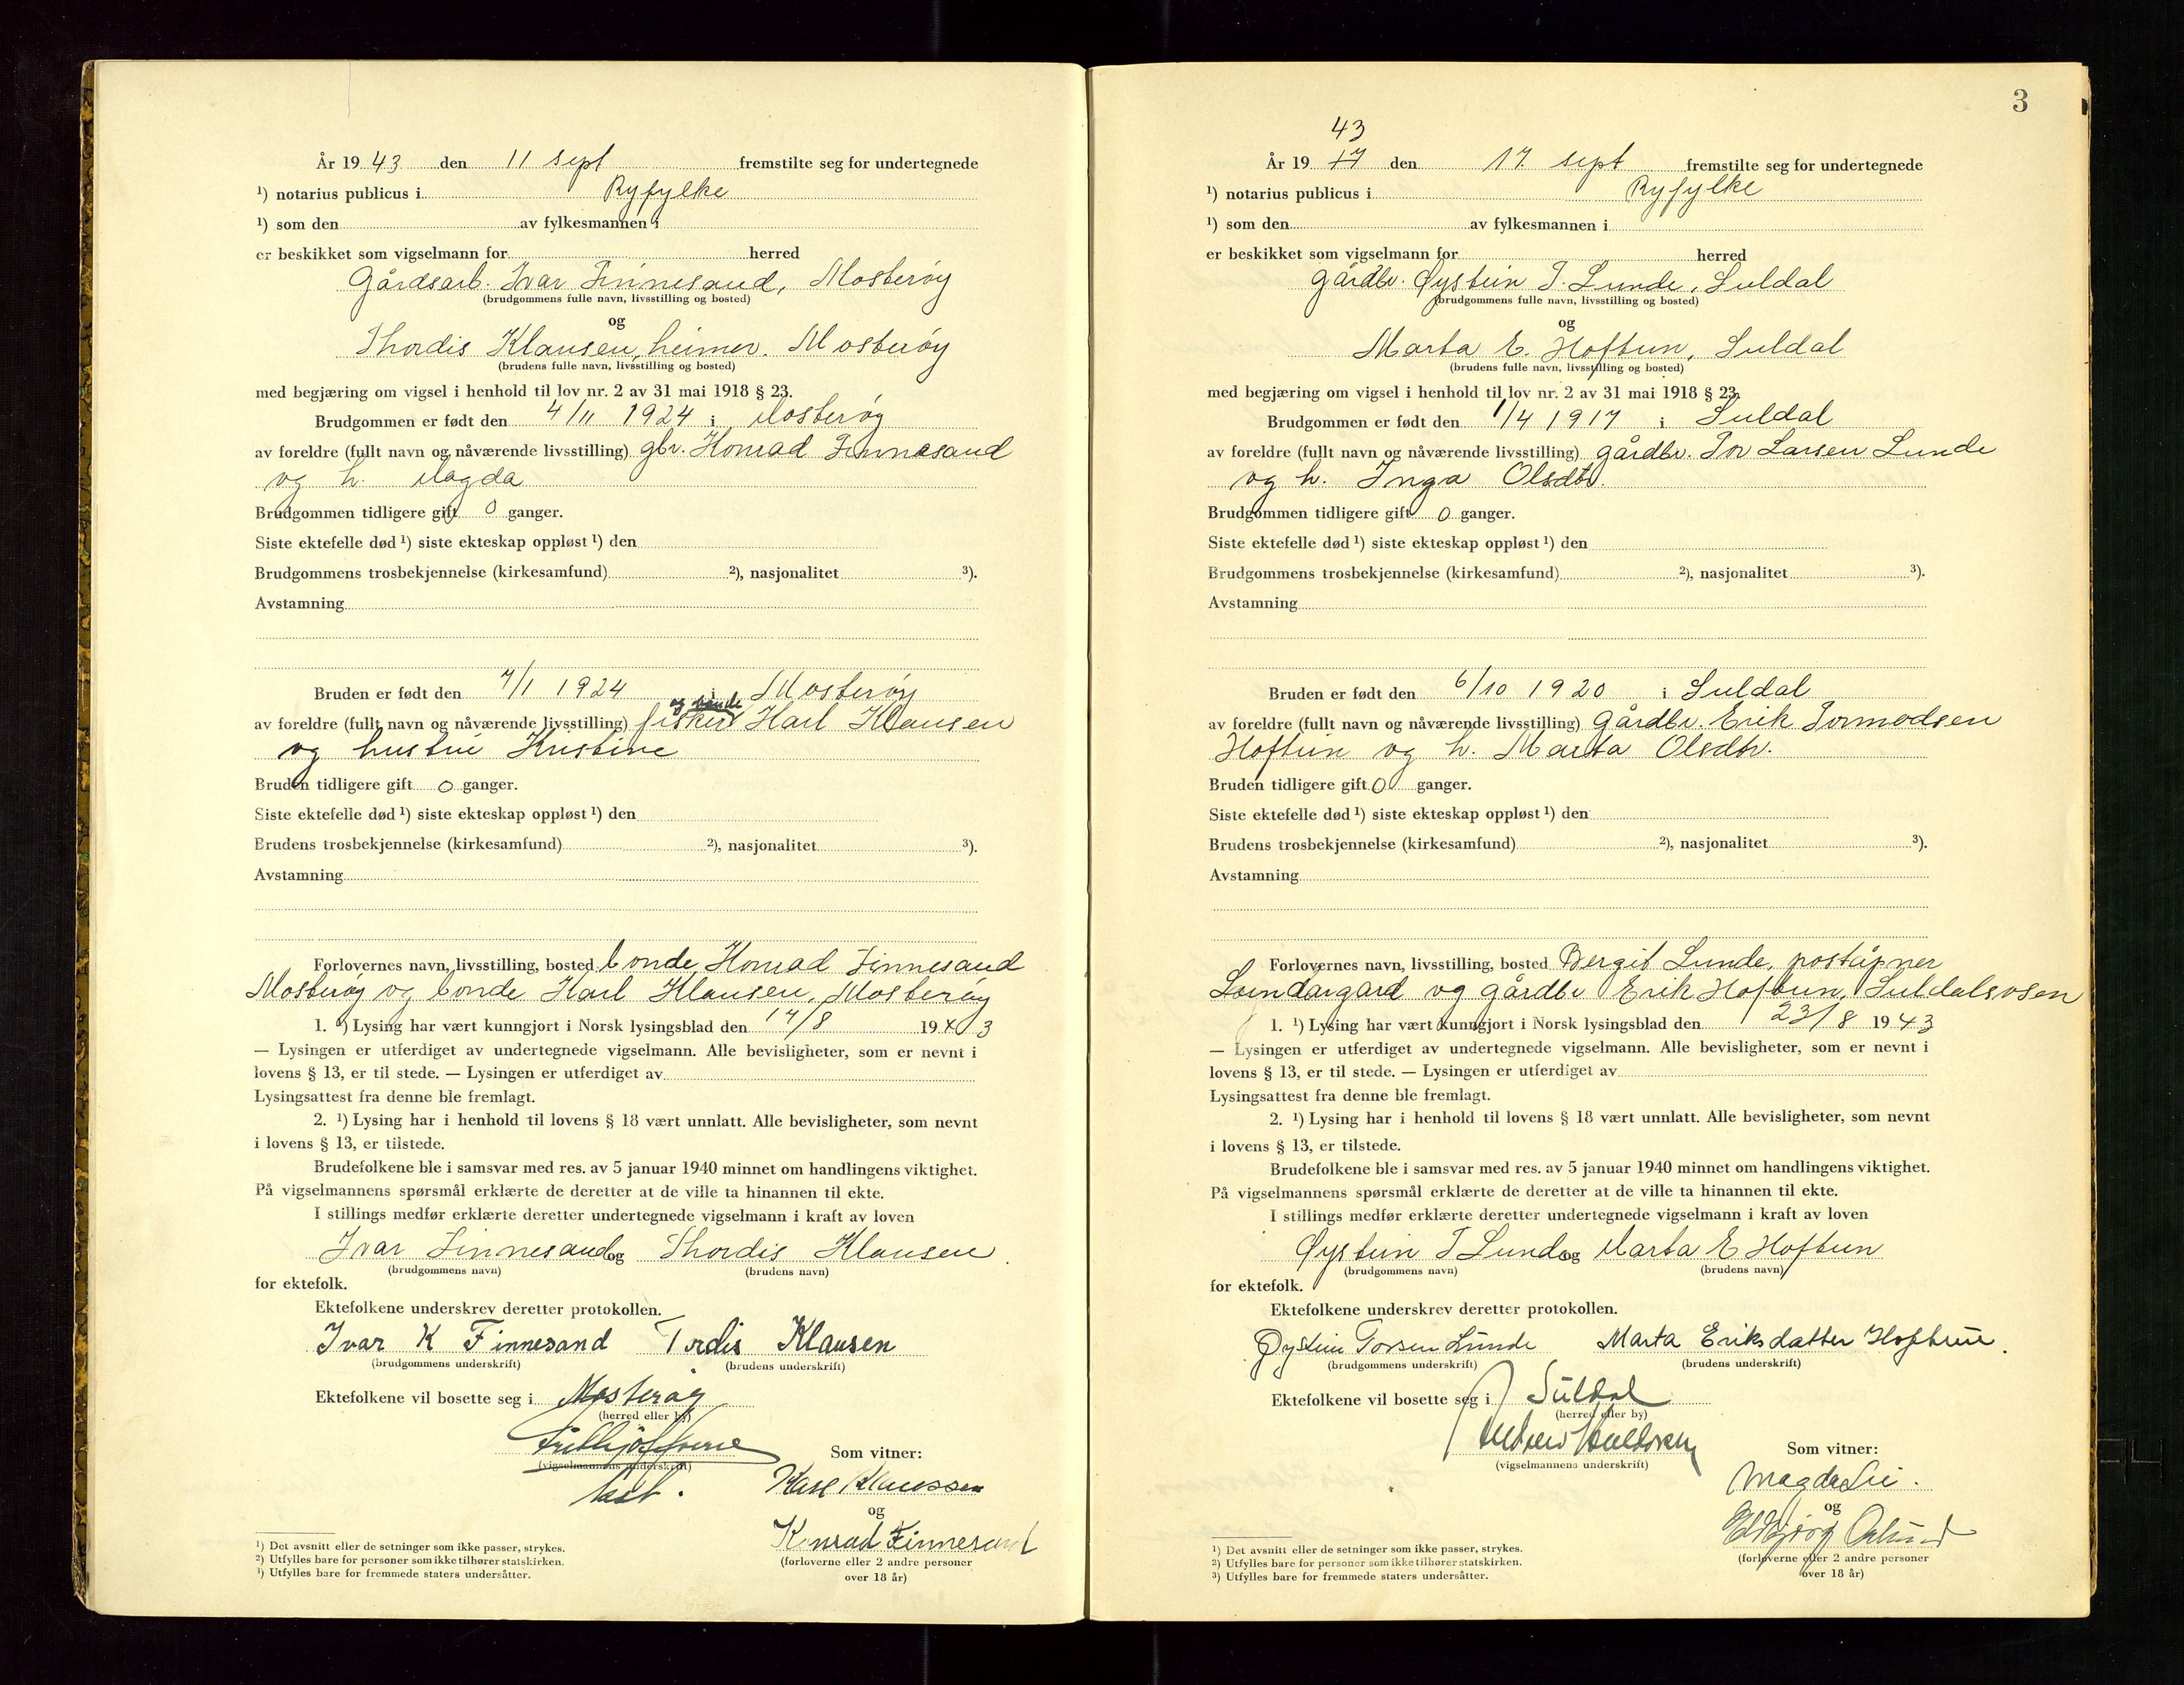 År 19 43 den 11 sept fremstilte seg for undertegnede
¹) notarius publicus i Ryfylke
¹) som den av fylkesmannen i
er beskikket som vigselmann for herred
Gårdsarb. Ivar Finnesand, Mosterøy
(brudgommens fulle navn, livsstilling og bosted)
og
Thordis Klausen, heimev. Mosterøy
(brudens fulle navn, livsstilling og bosted)
med begjæring om vigsel i henhold til lov nr. 2 av 31 mai 1918 § 23.
Brudgommen er født den 4/11 1924 i Mosterøy
av foreldre (fullt navn og nåværende livsstilling) gbr. Konrad Finnesand
og h. Magda
Brudgommen tidligere gift 0 ganger.
Siste ektefelle død ¹) siste ekteskap oppløst ¹) den
Brudgommens trosbekjennelse (kirkesamfund) ²), nasjonalitet ³).
Avstamning
Bruden er født den 7/1 1924 i Mosterøy
og bonde
av foreldre (fullt navn og nåværende livsstilling) fisker Karl Klausen
og hustru Kristine
Bruden tidligere gift 0 ganger.
Siste ektefelle død ¹) siste ekteskap oppløst ¹) den
Brudens trosbekjennelse (kirkesamfund) ²), nasjonalitet ³).
Avstamning
Forlovernes navn, livsstilling, bosted bonde Konrad Finnesand
Mosterøy og bonde Karl Klausen, Mosterøy
1. ¹) Lysing har vært kunngjort i Norsk lysingsblad den 17/8 194 3
— Lysingen er utferdiget av undertegnede vigselmann. Alle bevisligheter, som er nevnt i
lovens § 13, er til stede. — Lysingen er utferdiget av
Lysingsattest fra denne ble fremlagt.
2. ¹) Lysing har i henhold til lovens § 18 vært unnlatt. Alle bevisligheter, som nevnt
i lovens § 13, er tilstede.
Brudefolkene ble i samsvar med res. av 5 januar 1940 minnet om handlingens viktighet.
På vigselmannens spørsmål erklærte de deretter at de ville ta hinannen til ekte.
I stillings medfør erklærte deretter undertegnede vigselmann i kraft av loven
Ivar Finnesand og Thordis Klausen.
(brudgommens navn) (brudens navn)
for ektefolk.
Ektefolkene underskrev deretter protokollen.
Ivar K Finnesand Tordis Klausen
(brudgommens underskrift) (brudens underskrift)
Ektefolkene vil bosette seg i Mosterøy
(herred eller by)
(vigselmannens underskrift)
Som vitner:
Karl Klaussen
og
Konrad Finnesand
(forloverne eller 2 andre personer
over 18 år)
¹) Det avsnitt eller de setninger som ikke passer, strykes.
²) Utfylles bare for personer som ikke tilhører statskirken.
³) Utfylles bare for fremmede staters undersåtter.
3
43
År 19 17 den 17. sept fremstilte seg for undertegnede
¹) notarius publicus i Ryfylke
¹) som den av fylkesmannen i
er beskikket som vigselmann for herred
gårdbr. Øystein T. Lunde, Suldal
(brudgommens fulle navn, livsstilling og bosted)
og
Marta E. Hoftun, Suldal
(brudens fulle navn, livsstilling og bosted)
med begjæring om vigsel i henhold til lov nr. 2 av 31 mai 1918 § 23.
Brudgommen er født den 1/4 1917 i Suldal
av foreldre (fullt navn og nåværende livsstilling) gårdbr. Tor Larsen Lunde
og h. Inga Olsdtr.
Brudgommen tidligere gift 0 ganger.
Siste ektefelle død ¹) siste ekteskap oppløst ¹) den
Brudgommens trosbekjennelse (kirkesamfund) ²), nasjonalitet ³).
Avstamning
Bruden er født den 6/10 1920 i Suldal
av foreldre (fullt navn og nåværende livsstilling) gårdbr. Erik Tormodsen
Hoftun og h. Marta Olsdtr.
Bruden tidligere gift 0 ganger.
Siste ektefelle død ¹) siste ekteskap oppløst ¹) den
Brudens trosbekjennelse (kirkesamfund) ²), nasjonalitet ³).
Avstamning
Forlovernes navn, livsstilling, bosted Bergit Lunde, poståpner
og gårdbr Erik Hoftun, Suldalsosen
1. ¹) Lysing har vært kunngjort i Norsk lysingsblad den 23/8 1943
— Lysingen er utferdiget av undertegnede vigselmann. Alle bevisligheter, som er nevnt i
lovens § 13, er til stede. — Lysingen er utferdiget av
Lysingsattest fra denne ble fremlagt.
2. ¹) Lysing har i henhold til lovens § 18 vært unnlatt. Alle bevisligheter, som nevnt
i lovens § 13, er tilstede.
Brudefolkene ble i samsvar med res. av 5 januar 1940 minnet om handlingens viktighet.
På vigselmannens spørsmål erklærte de deretter at de ville ta hinannen til ekte.
I stillings medfør erklærte deretter undertegnede vigselmann i kraft av loven
Øystein T Lunde og Marta E Hoftun
(brudgommens navn) (brudens navn)
for ektefolk.
Ektefolkene underskrev deretter protokollen.
Øystein Torsen Lunde Marta Eriksdatter Hoftun.
(brudgommens underskrift) (brudens underskrift)
Ektefolkene vil bosette seg i Suldal
(herred eller by)
(vigselmannens underskrift)
Som vitner:
Magda Lie.
og
(forloverne eller 2 andre personer
over 18 år)
¹) Det avsnitt eller de setninger som ikke passer, strykes.
²) Utfylles bare for personer som ikke tilhører statskirken.
³) Utfylles bare for fremmede staters undersåtter.